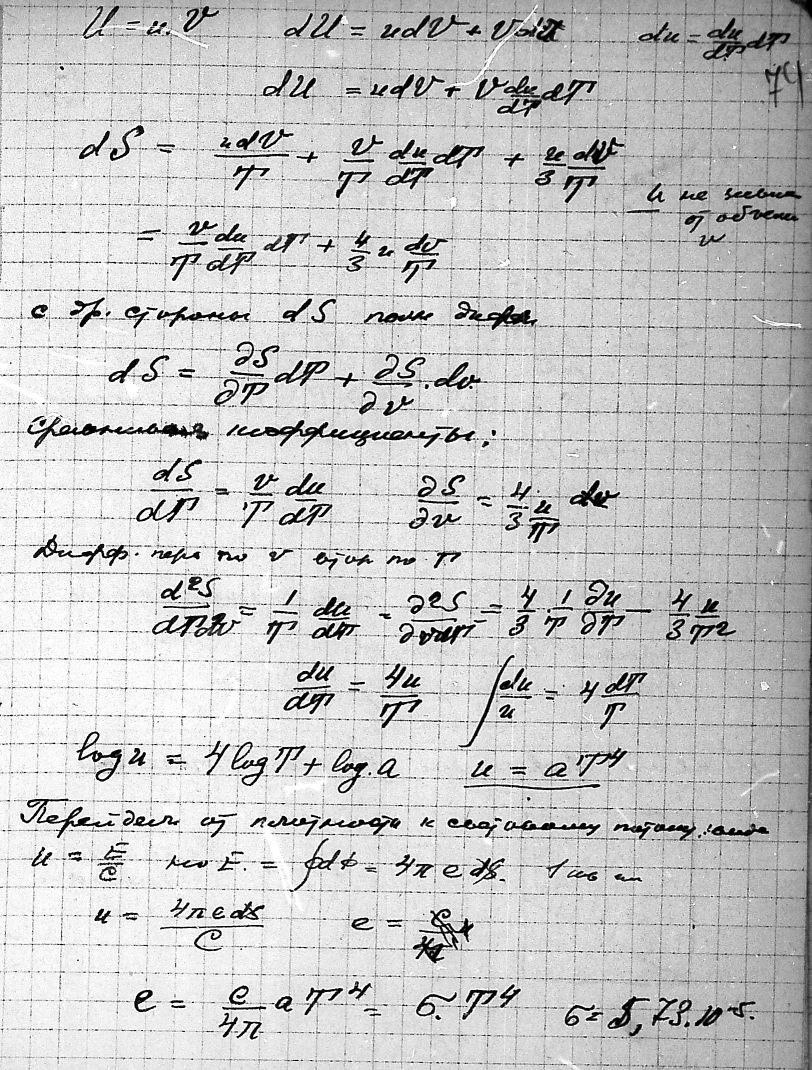 U = u.V dU = udV + Vdu du = du/dT dT
74
dU = udV + V du/dT dT
dS = udV/T + V/T du/dT dT + u/3 dV/T
u не зависит
от объема
v
= v/T du/dT dT + 4/3 u dv/T
с др. стороны dS полн дифф.
dS = ∂S/∂T dT + ∂S/∂v . dv
Сравнивая коэффициенты;
dS/dT = v/T du/dT ∂S/∂v = 4/3 u/T
Дифф. перв по v втор по T
d²S/dTdv = 1/T du/dT = ∂²S/∂v∂T = 4/3 · 1/T ∂u/∂T − 4/3 u/T²
du/dT = 4u/T ∫ du/u = 4 dT/T
log u = 4 log T + log. a u = aT⁴
Перейдем от плотности к световому потоку
u = E/c но E. = ∮dΦ = 4π e dS.
u = 4π e dS/C e = c/4π u
e = c/4π a T⁴ = σ. T⁴ σ = 5,73.10⁻⁵.